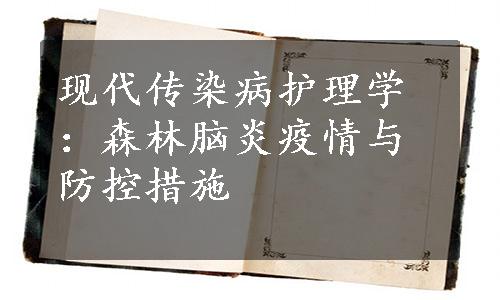 现代传染病护理学
：森林脑炎疫情与
防控措施